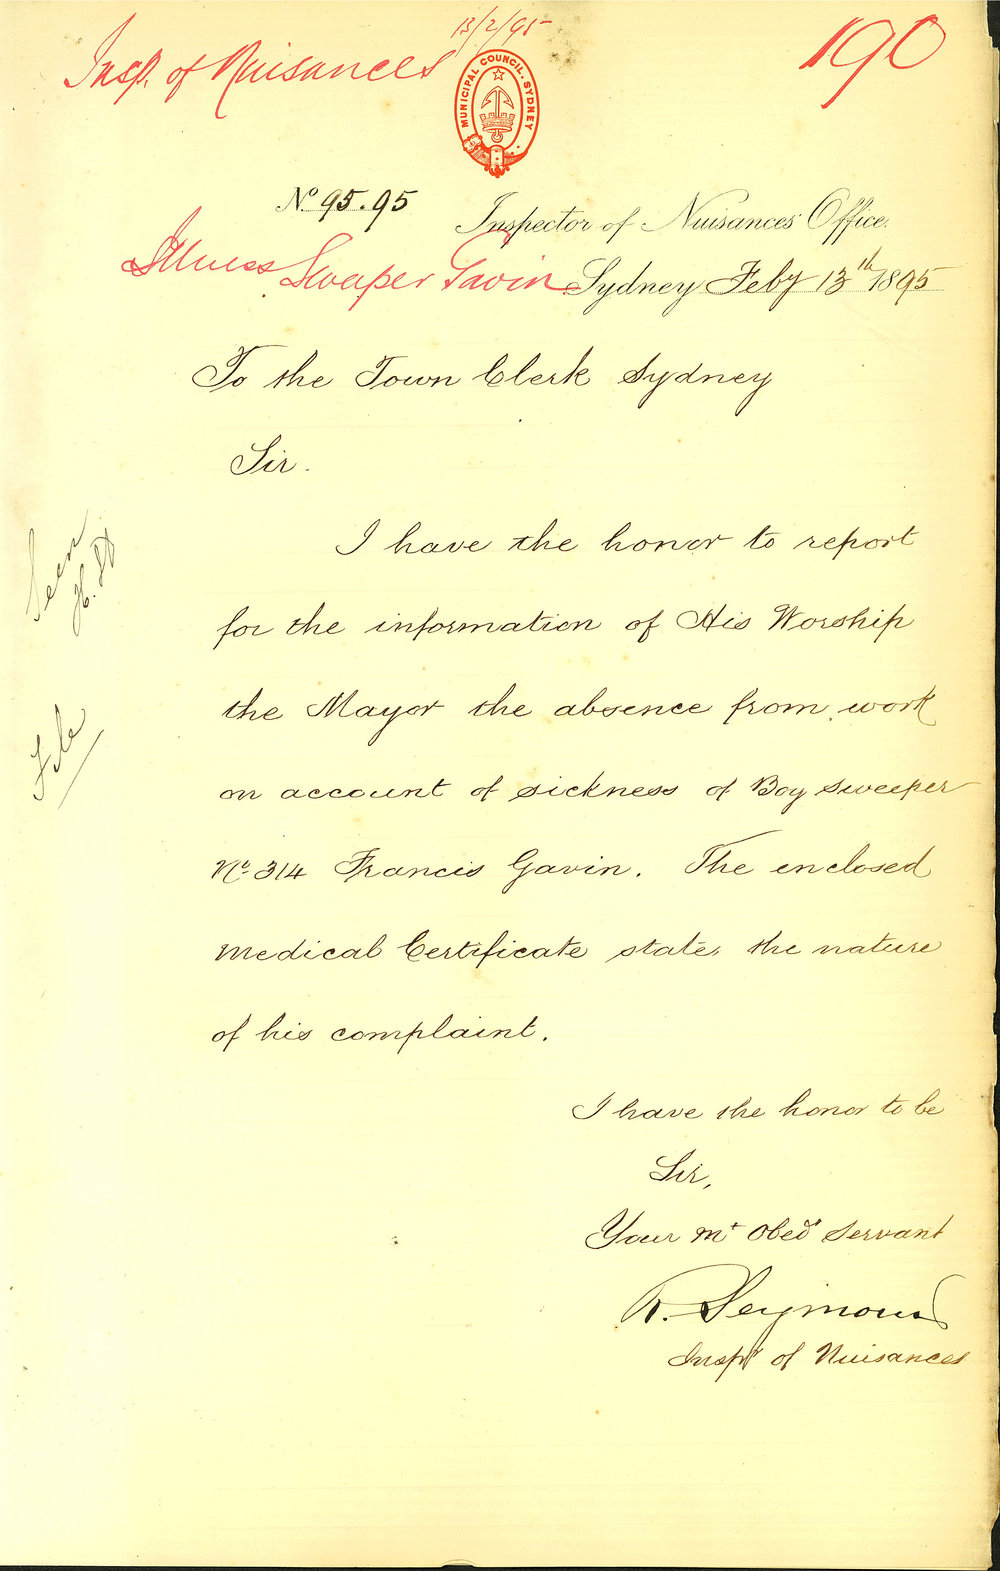 13/2/95
Insp. of Nuisances
190
MUNICIPAL COUNCIL. SYDNEY
No 95.95
Inspector of Nuisances' Office.
Illness Sweeper Gavin
Sydney Feby 13th 1895
To the Town Clerk Sydney
Sir.
I have the honor to report
for the information of His Worship
the Mayor the absence from work
on account of sickness of Boy Sweeper
No. 314 Francis Gavin. The enclosed
Medical Certificate states the nature
of his complaint.
I have the honor to be
Sir,
Your Mt Obedt Servant
R. Seymour
Inspr of Nuisances
Seen
File